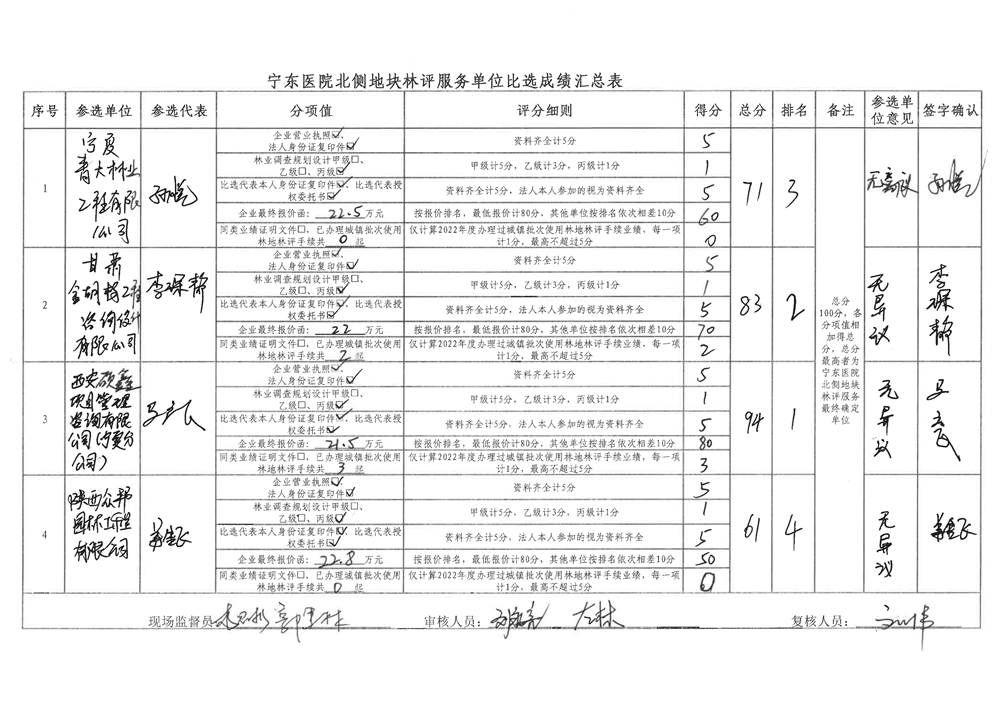 宁东医院北侧地块林评服务单位比选成绩汇总表
序号 参选单位 参选代表 分项值 评分细则 得分 总分 排名 备注 参选单位意见 签字确认
1
宁夏
青大林业
工程有限
公司
企业营业执照☑、
法人身份证复印件☑
资料齐全计5分
5
林业调查规划设计甲级□、
乙级□、丙级☑
甲级计5分,乙级计3分,丙级计1分
1
比选代表本人身份证复印件☑、比选代表授
权委托书☑
资料齐全计5分,法人本人参加的视为资料齐全
5
企业最终报价函: 22.5 万元
按报价排名,最低报价计80分,其他单位按排名依次相差10分
60
同类业绩证明文件□,已办理城镇批次使用
林地林评手续共 0 起
仅计算2022年度办理过城镇批次使用林地林评手续业绩,每一项
计1分,最高不超过5分
0
71
3
无意议
2
甘肃
金胡杨工程
咨询设计
有限公司
李琛静
企业营业执照☑、
法人身份证复印件☑
资料齐全计5分
5
林业调查规划设计甲级□、
乙级□、丙级☑
甲级计5分,乙级计3分,丙级计1分
1
比选代表本人身份证复印件☑、比选代表授
权委托书☑
资料齐全计5分,法人本人参加的视为资料齐全
5
企业最终报价函: 22 万元
按报价排名,最低报价计80分,其他单位按排名依次相差10分
70
同类业绩证明文件□,已办理城镇批次使用
林地林评手续共 2 起
仅计算2022年度办理过城镇批次使用林地林评手续业绩,每一项
计1分,最高不超过5分
2
83
2
无异议
李琛静
3
西安硕鑫
项目管理
咨询有限
公司(宁夏分
公司)
企业营业执照☑、
法人身份证复印件☑
资料齐全计5分
5
林业调查规划设计甲级□、
乙级□、丙级☑
甲级计5分,乙级计3分,丙级计1分
1
比选代表本人身份证复印件☑、比选代表授
权委托书☑
资料齐全计5分,法人本人参加的视为资料齐全
5
企业最终报价函: 21.5 万元
按报价排名,最低报价计80分,其他单位按排名依次相差10分
80
同类业绩证明文件□,已办理城镇批次使用
林地林评手续共 3 起
仅计算2022年度办理过城镇批次使用林地林评手续业绩,每一项
计1分,最高不超过5分
3
94
1
无异议
4
陕西众邦
园林工程
有限公司
企业营业执照☑、
法人身份证复印件☑
资料齐全计5分
5
林业调查规划设计甲级□、
乙级□、丙级☑
甲级计5分,乙级计3分,丙级计1分
1
比选代表本人身份证复印件☑、比选代表授
权委托书☑
资料齐全计5分,法人本人参加的视为资料齐全
5
企业最终报价函: 22.8 万元
按报价排名,最低报价计80分,其他单位按排名依次相差10分
50
同类业绩证明文件□,已办理城镇批次使用
林地林评手续共 0 起
仅计算2022年度办理过城镇批次使用林地林评手续业绩,每一项
计1分,最高不超过5分
0
61
4
无异议
总分
100分,各
分项值相
加得总
分,总分
最高者为
宁东医院
北侧地块
林评服务
最终确定
单位
现场监督员 审核人员: 复核人员: